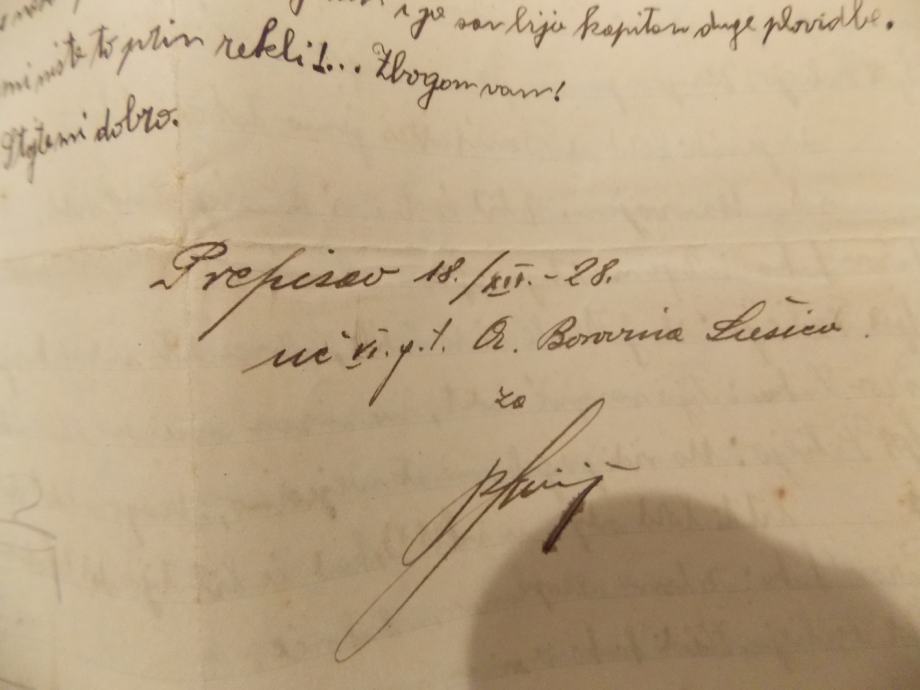 i ja san bija kapitan duge plovidbe.
niste to prin rekli!... Zbogom vam!
Stojte mi dobro.
Prepisao 18./XII.-28.
uč VI. g. t. A. Borovina Lušića.
za